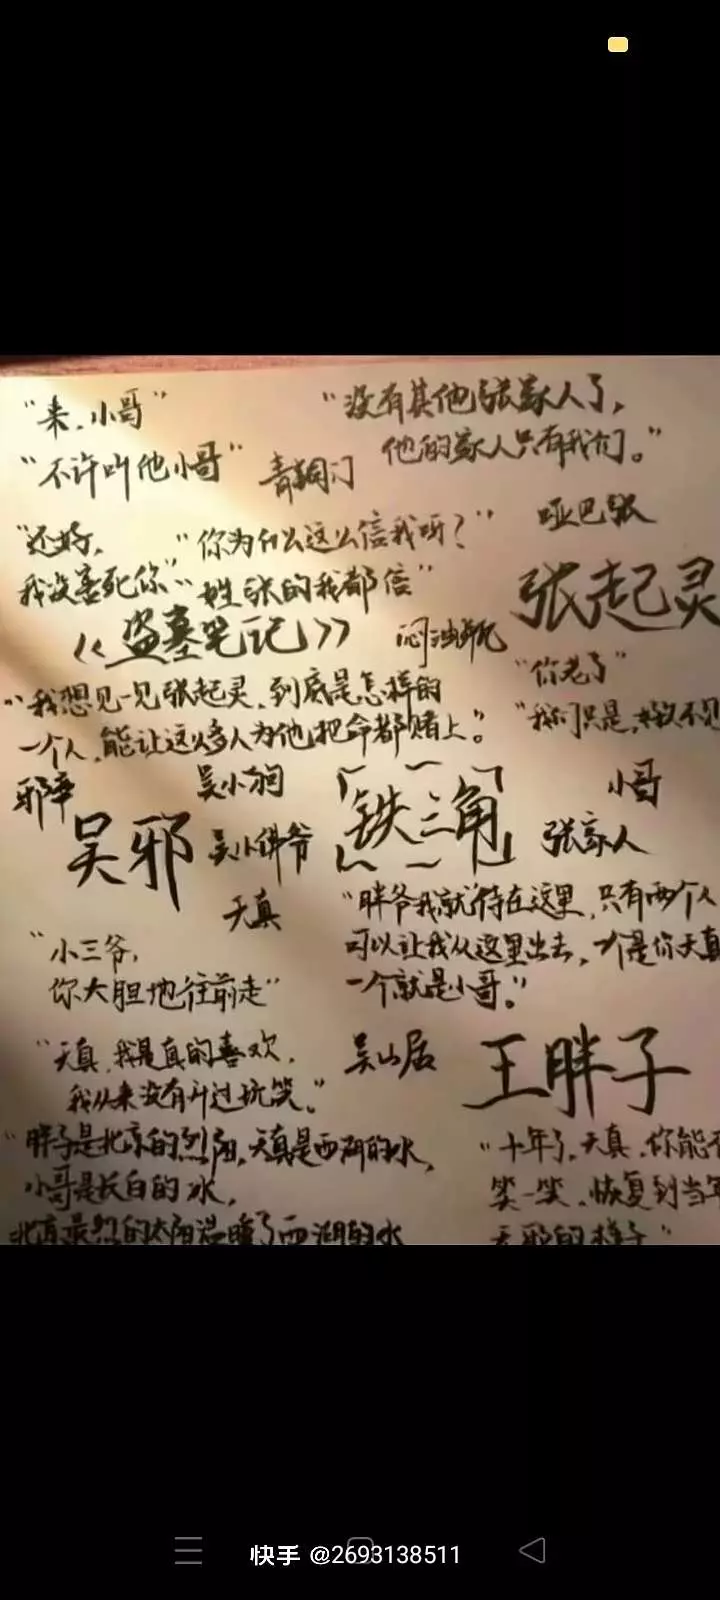 “来，小哥”
“不许叫他小哥”
“没有其他张家人了，
他的家人只有我们。”
青铜门
“还好，
我没害死你”
“你为什么这么信我呀？”
“姓张的我都信”
哑巴张
张起灵
《盗墓笔记》
闷油瓶
“你老了”
“我们只是，好久不见
“我想见一见张起灵，到底是怎样的
一个人，能让这么多人为他把命都赌上。”
邪帝
吴小狗
吴邪
吴小佛爷
天真
「铁三角」
小哥
张家人
“小三爷，
你大胆地往前走”
“胖爷我就待在这里，只有两个人
可以让我从这里出去，一个是你天真
一个就是小哥。”
“天真，我是真的喜欢，
我从来没有开过玩笑。”
吴山居
王胖子
“胖子是北京的烈阳，天真是西湖的水，
小哥是长白的冰，
北京最烈的太阳温暖了西湖的水
“十年了，天真，你能否
笑一笑，恢复到当年
天邪的样子”
快手 @2693138511